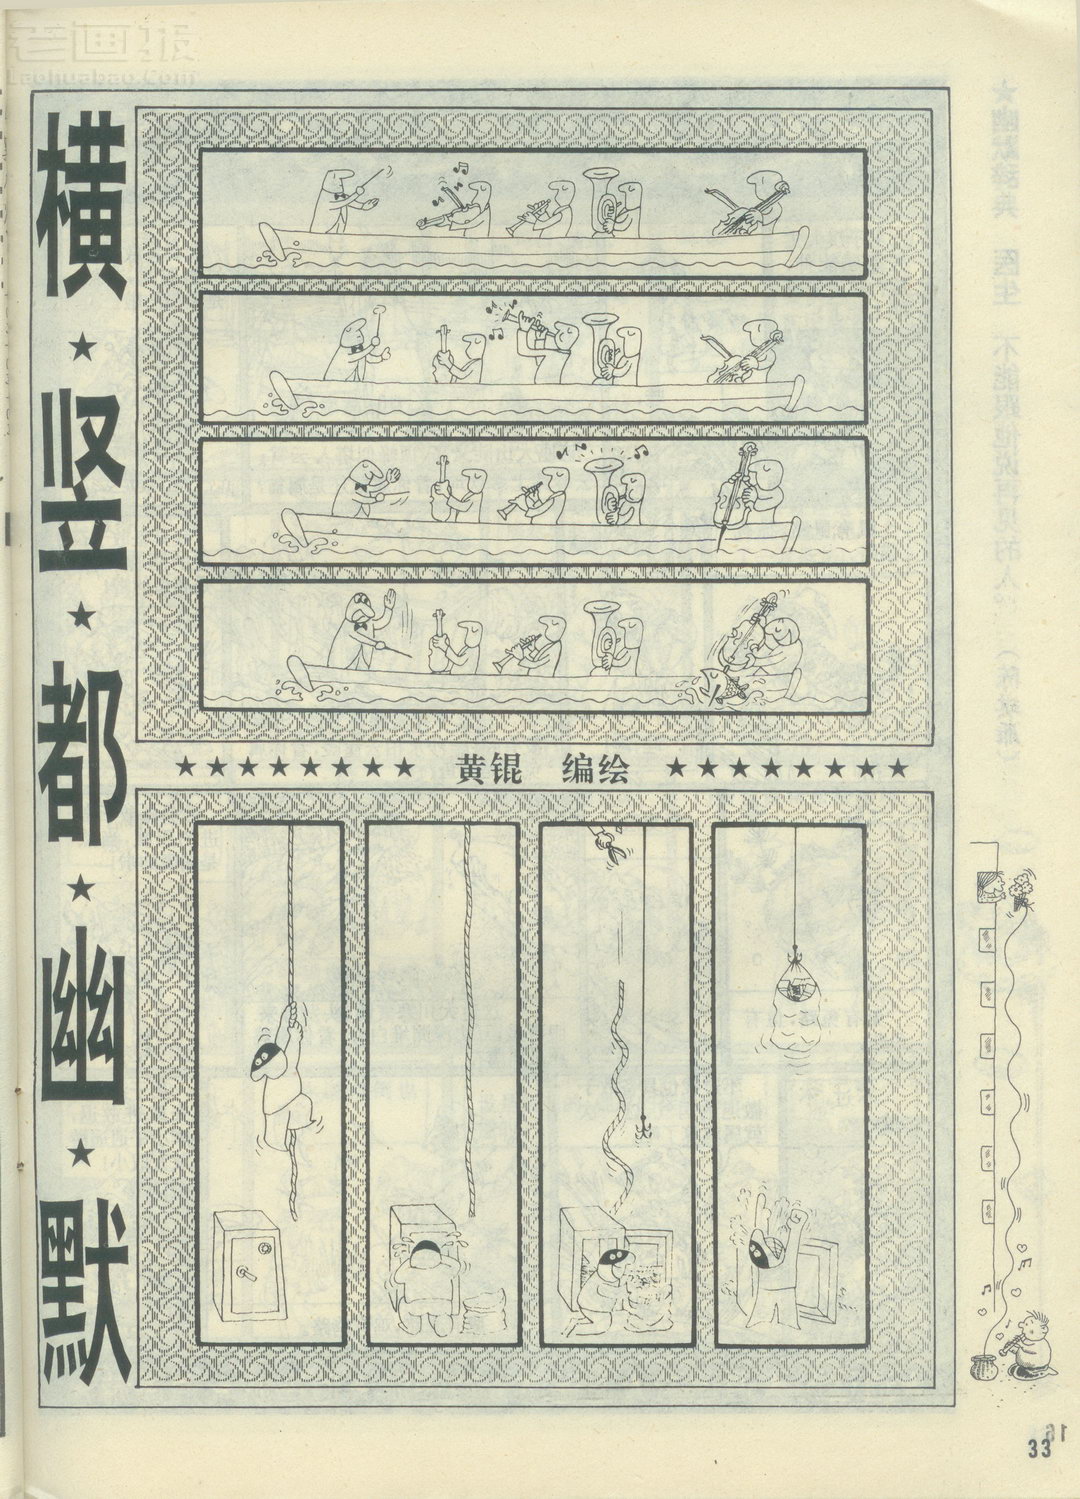 老画报
laohuabao.com
横★竖★都★幽★默
★★★★★★★★ 黄锟 编绘 ★★★★★★★★
33